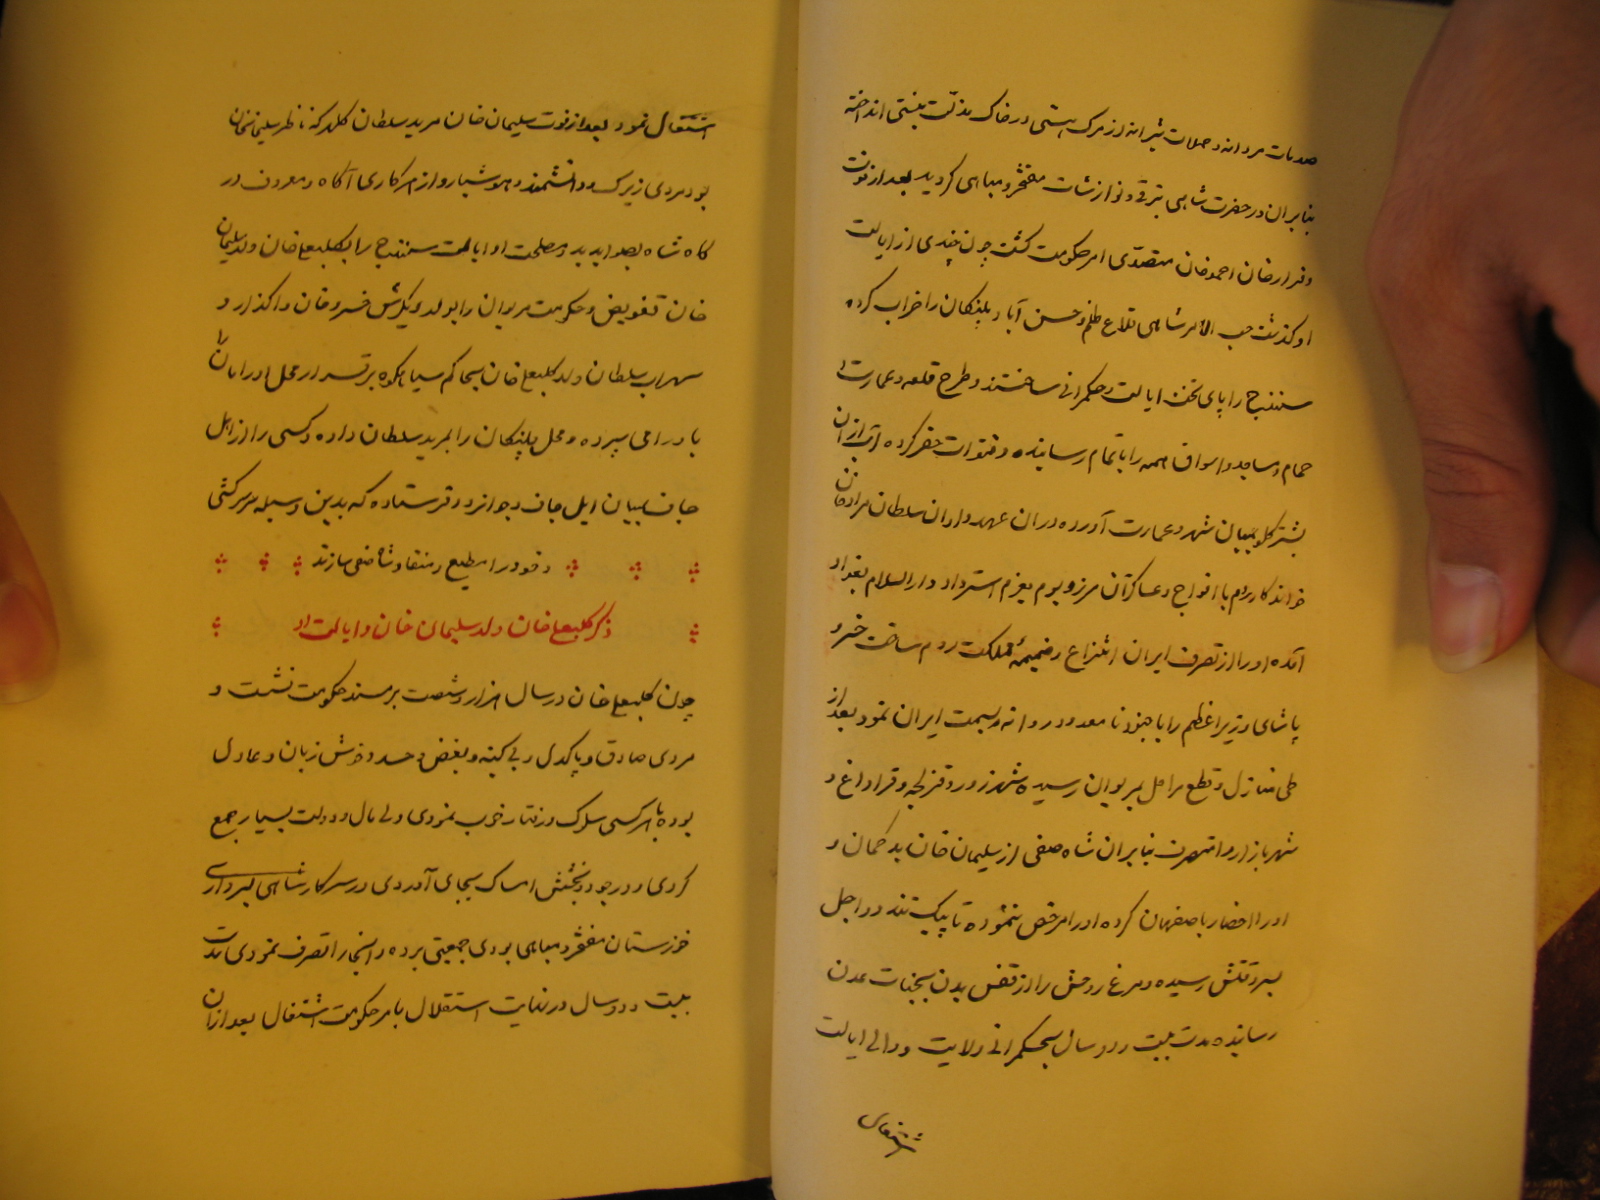 صدمات مردانه و حملات شیرانه از مرکب هستی در خاک مذلت نیستی انداخته
بنابران در حضرت شاهی بترقی و نوازشات مفتخر و مباهی کردید بعد از فوت
خان احمدخان متصدی امر حکومت کشت چون چندی از ایالت
او کذشت حسب الامر شاهی قلاع ظلم و حسن آباد و پلنکان را خراب کرده
سنندج را پای تخت ایالت و حکمرانی ساختند و طرح قلعه و عمارت و
حمام و مساجد و اسواق همه را باتمام رسانیده و قنوات حفر کرده آب از آن
بشتر کلو بمیان شهر و عمارت آورده دران عهد و اوان سلطان مرادخان
خواندکار روم با افواج و عساکر آن مرز و بوم بعزم استرداد دار السلام بغداد
آمده او را از تصرف ایران انتزاع و ضمیمه مملکت روم ساخت خسرو
پاشای وزیر اعظم را با جنود نا معدود روانه سمت ایران نمود بعد از
طی منازل و قطع مراحل بمریوان رسیده شهرزور و قزلجه و قراداغ و
شهربازار و متصرف بنابران شاه صفی از سلیمان خان بدکمان و
او را احضار باصفهان کرده او را مرخص ننموده تا پیک تند رو اجل
بسر وقتش رسیده و مرغ روحش را از قفس بدن بجنات عدن
رسانیده مدت بیست و دو سال بحکمرانی ولایت و والی ایالت
اشتغال
اشتغال نمود بعد از فوت سلیمان خان مرید سلطان کلهر که ناظر سلیمانخان
بود مردی زیرک و دانشمند و هوشیار و از هر کاری آکاه و معروف در
کاه شاه بصوابدید و مصلحت او ایالت سنندج را بکلبعلی خان ولد سلیمان
خان تفویض و حکومت مریوان را بولد دیکرش خسروخان واکذار و
سهراب سلطان ولد کلبعلی خان بحاکم سیاهکوه برقرار محل اورامان را
با درامی سپرده و محل پلنکان را بمرید سلطان داده و کسی را از اهل
جاف بمیان ایل جاف و جوانرود فرستاده که بدین وسیله سرکشی
و خود را مطیع و منقاد شاه صفی سازند
ذکر کلبعلی خان ولد سلیمان خان و ایالت او
چون کلبعلی خان در سال هزار و شصت بر مسند حکومت نشست و
مردی صادق و پاکدل و بی کینه و بغض و حسد و خوش زبان و عادل
بوده با هر کسی سلوک و رفتار خوب نمودی ولی مال و دولت بسیار جمع
کردی و در جود و بخشش امساک بجای آوردی در سرکار شاهی بسرداری
خوزستان مفتخر و مباهی بودی جمعیتی برده و آنجا را تصرف نمودی مدت
بیست و دو سال در نهایت استقلال بامر حکومت اشتغال بعد ازان